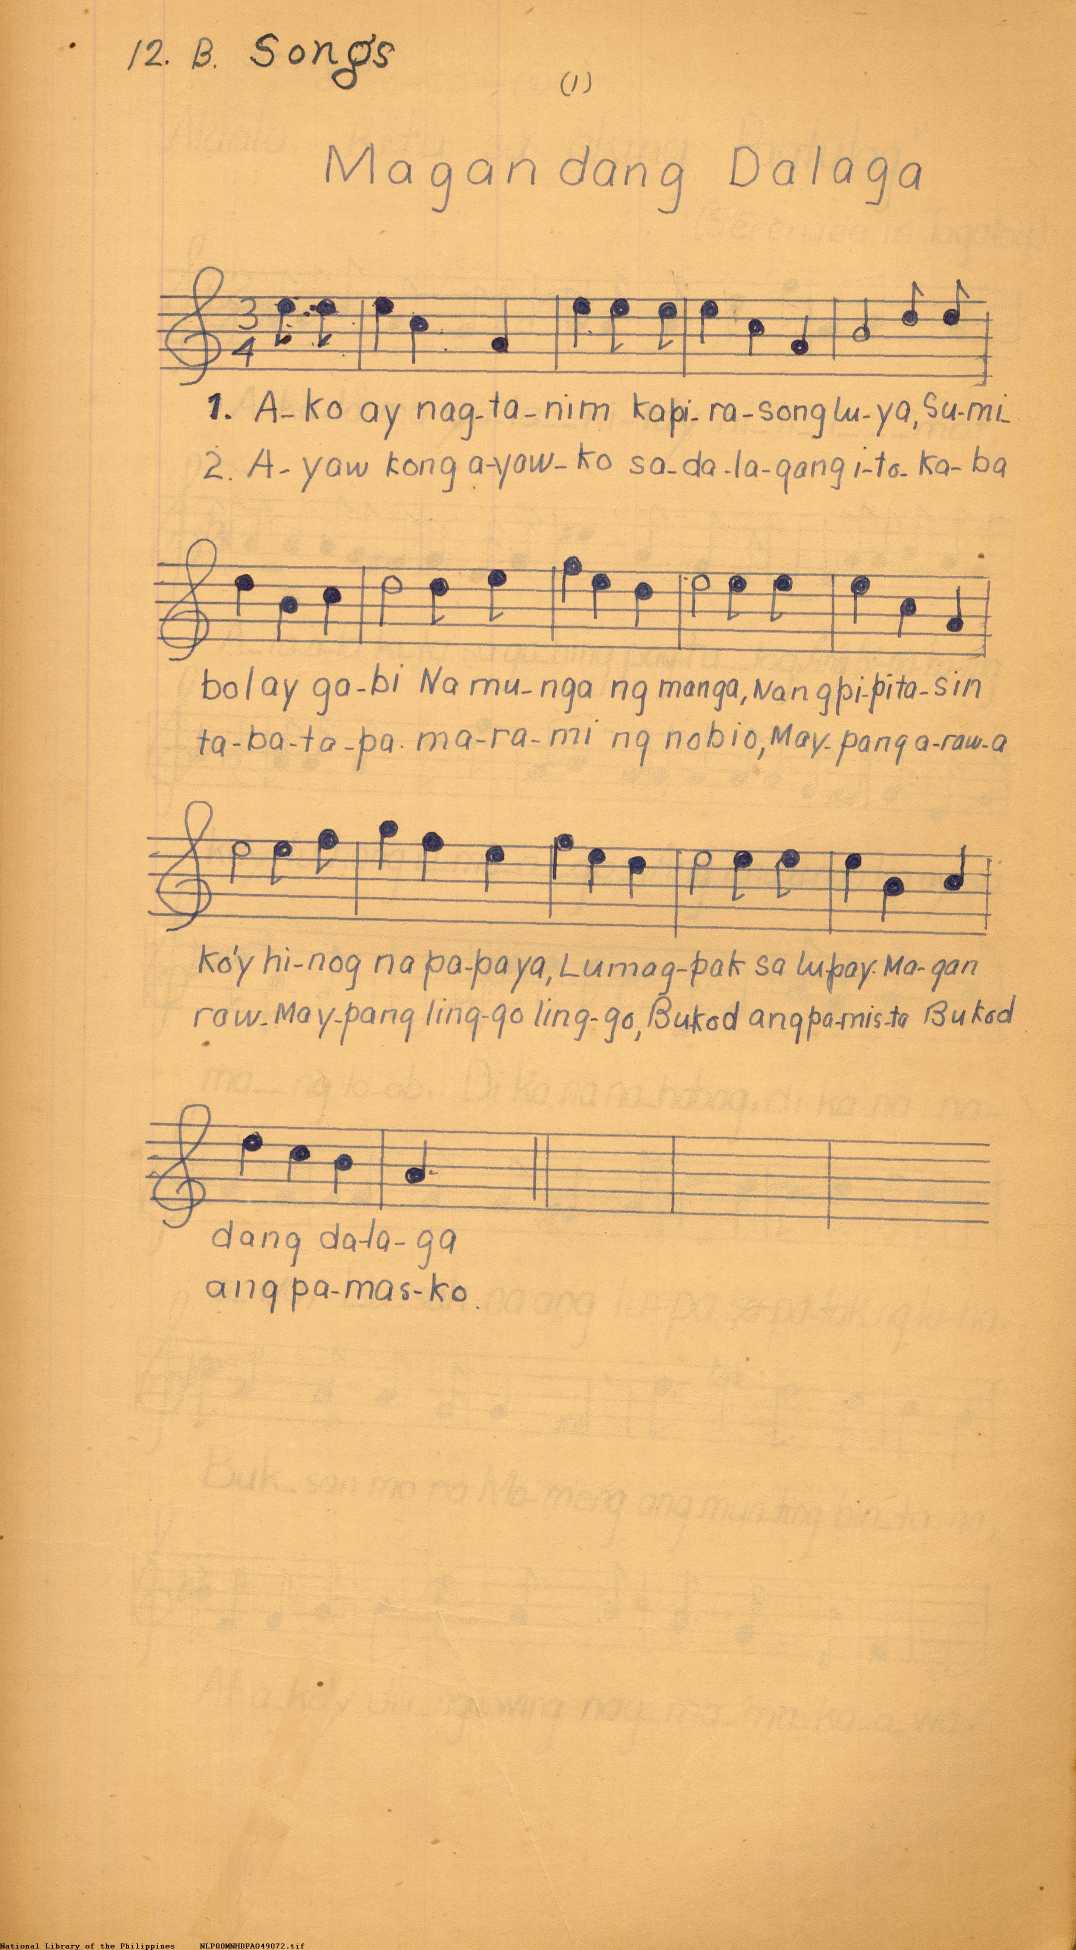 12. B. Songs
(1)
Magandang Dalaga
3
4
1. A-ko ay nag-ta-nim kapi-ra-song lu-ya, Su-mi-
2. A-yaw kong a-yaw-ko sa-da-la-gang i-to- ka-ba
bolay ga-bi Na mu-nga ng manga, Nang pi-pita-sin
ta-ba-ta-pa. ma-ra-mi ng nobio, May-pang a-raw-a
ko'y hi-nog na pa-paya, Lumag-pak sa lu-pay. Ma-gan
raw-May-pang ling-go ling-go, Bukod ang pa-mis-ta Bukod
dang da-la-ga
ang pa-mas-ko.
National Library of the Philippines NLP00MNHDPA049072.tif